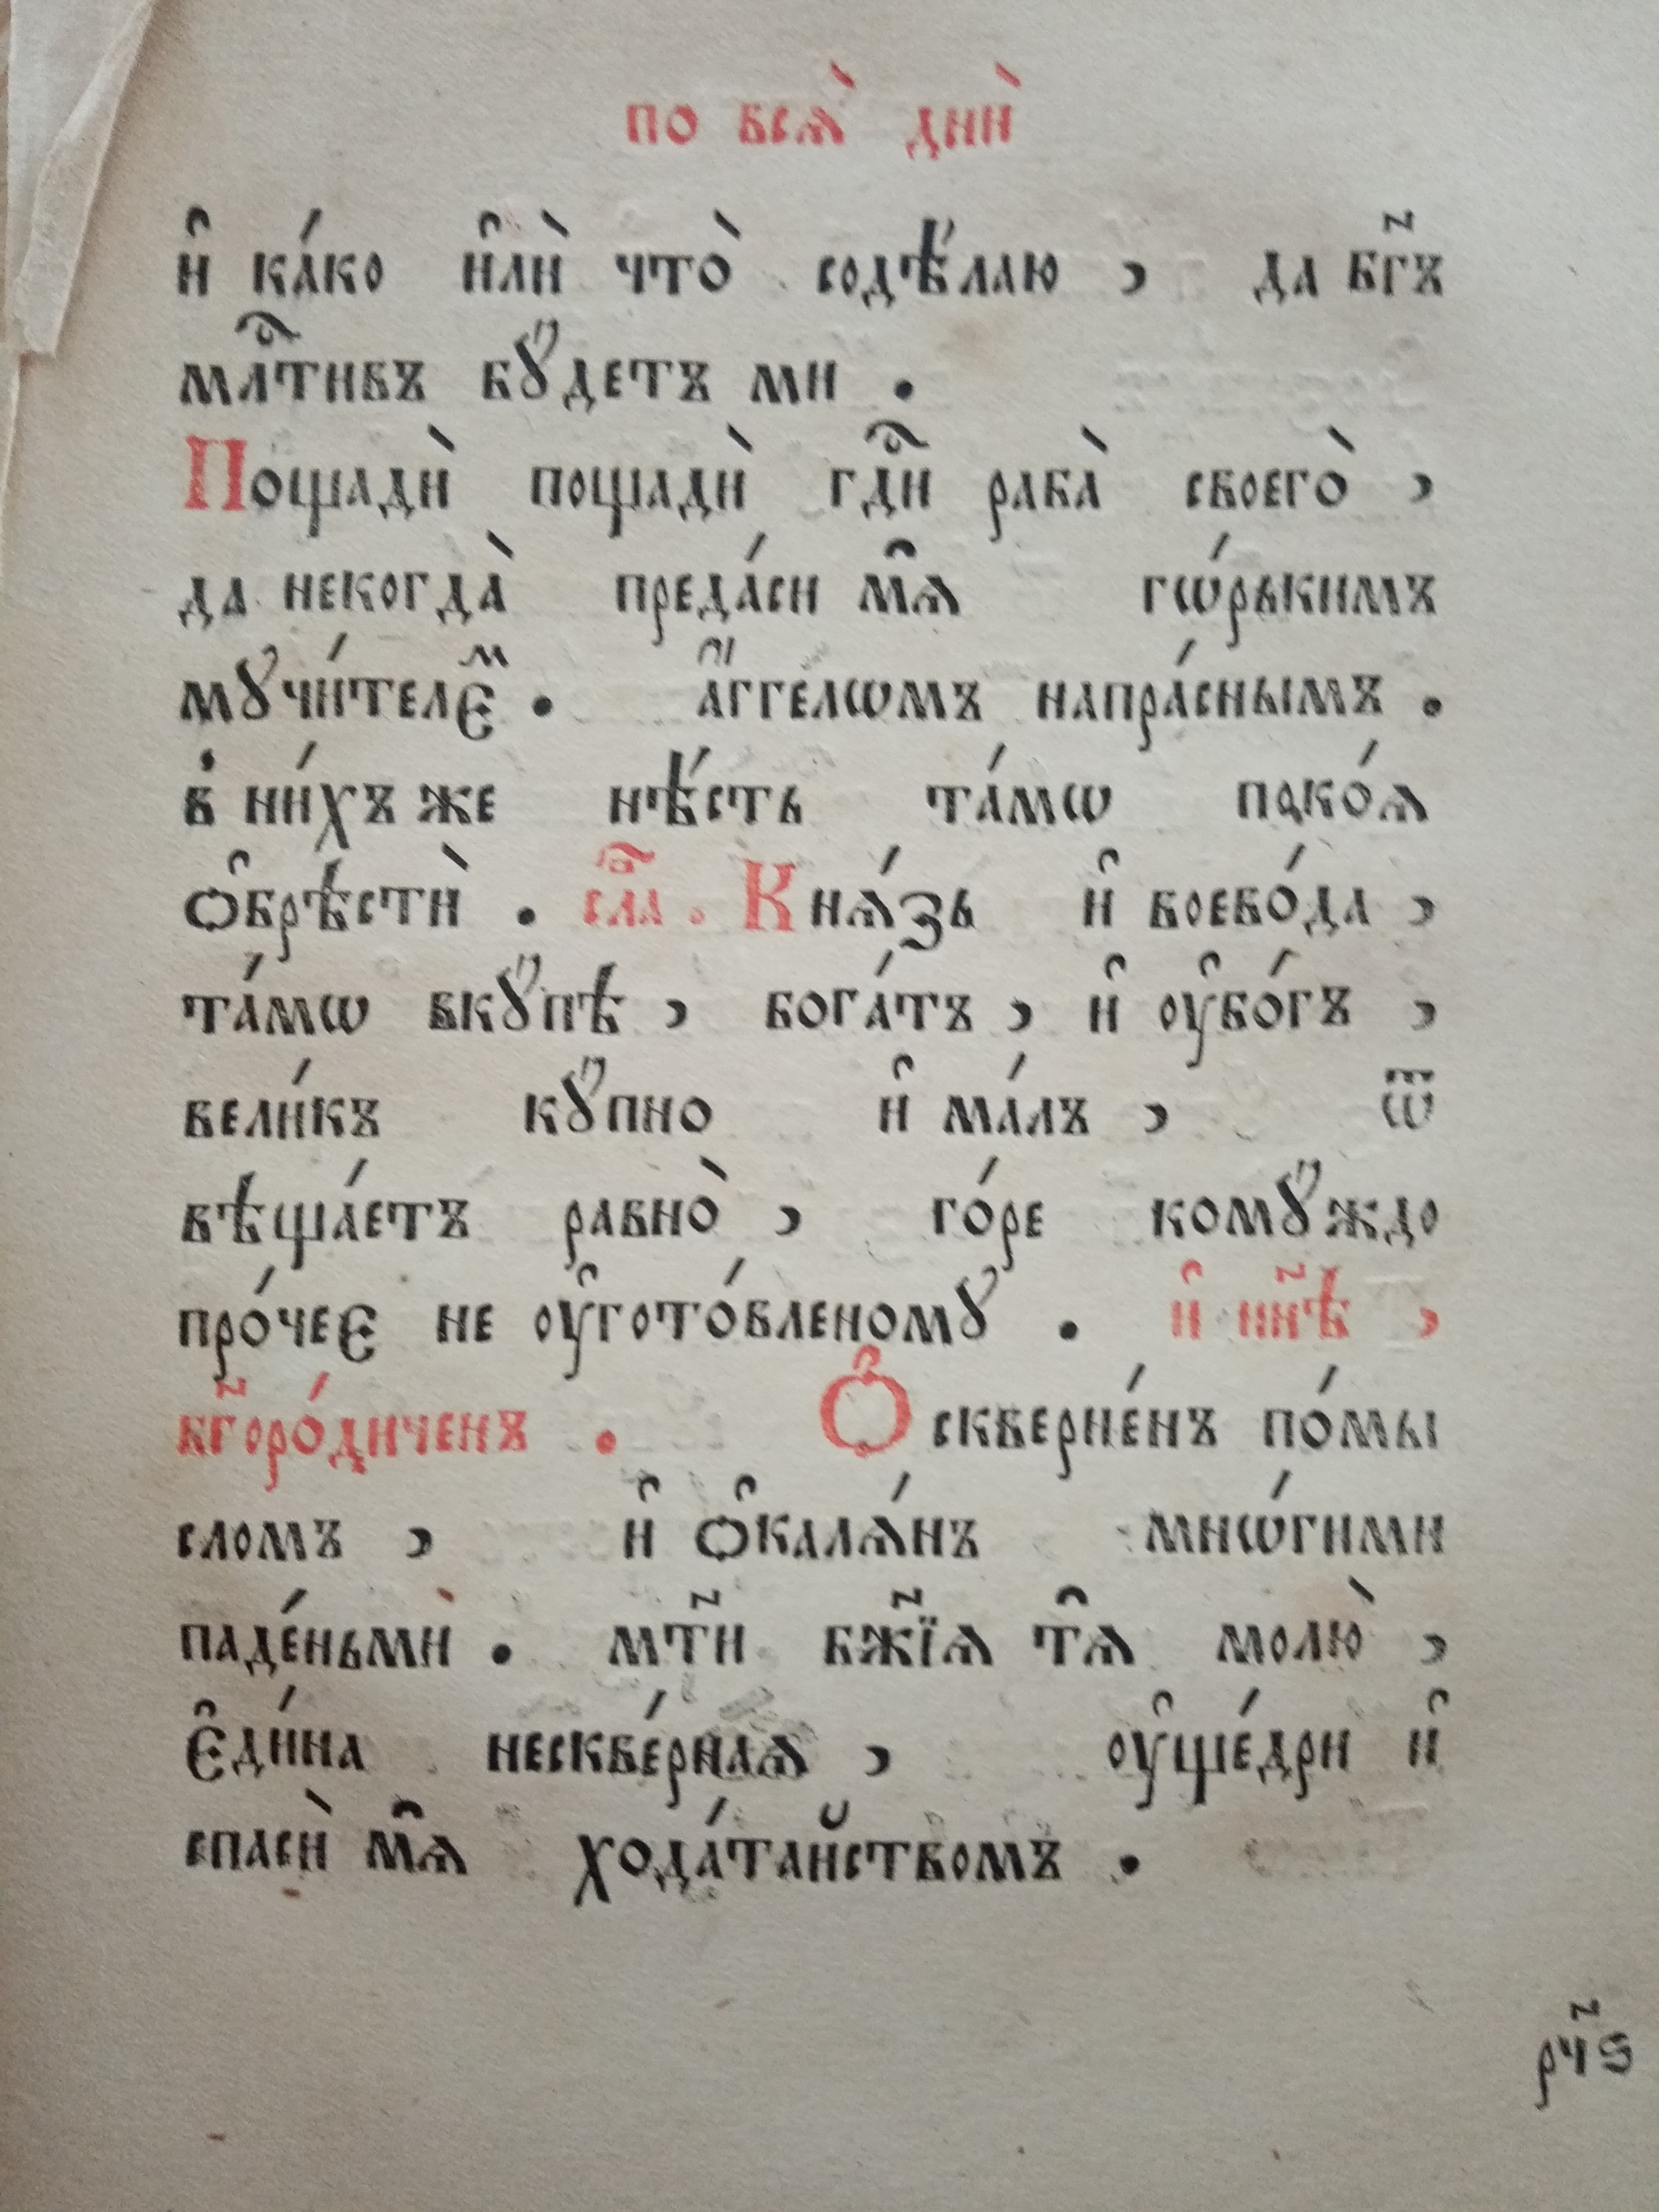 по всѧ̀ днѝ
и҆ ка́ко и҆лѝ что̀ содѣ́лаю , да бг҃ъ
млⷭ҇тивъ бꙋ́детъ ми .
Пощадѝ пощадѝ гдⷭ҇и раба̀ своего̀ ,
да некогда̀ преда́си мѧ̑ гѡ́рькимъ
мꙋчи́телєⷨ . а҆́ггеломъ напра́снымъ .
в ни́хъ же нѣ́сть та́мѡ поко́ѧ
ѻ҆брѣстѝ . сла̑ . Кнѧ́зь и҆ воево́да ,
та́мѡ вкꙋ́пѣ , бога́тъ , и҆ ᲂу҆бо́гъ ,
вели́къ кꙋ́пно и҆ ма́лъ , ѿ
вѣща́етъ равно̀ , го́ре комꙋ́ждо
про́чеє не ᲂу҆гото́вленомꙋ . и҆ нн҃ѣ ,
бг҃оро́диченъ . Ѻ҆скверне́нъ по́мы
сломъ , и҆ ѻ҆калѧ́нъ мнѡ́гими
паде́ньмѝ . мт҃и бж҃їѧ тѧ̑ молю̀ ,
є҆ди́на нескве́рнаѧ , ᲂу҆ще́дри и҆
спасѝ мѧ̑ хода́тайствомъ .
рч҃ѕ